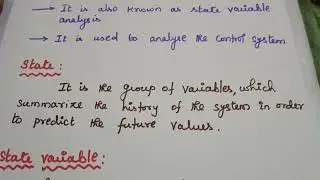 → It is also known as state variable
analysis
→ It is used to analyse the control system
State:
It is the group of variables, which
summarize the history of the system in order
to predict the future values.
State variable: